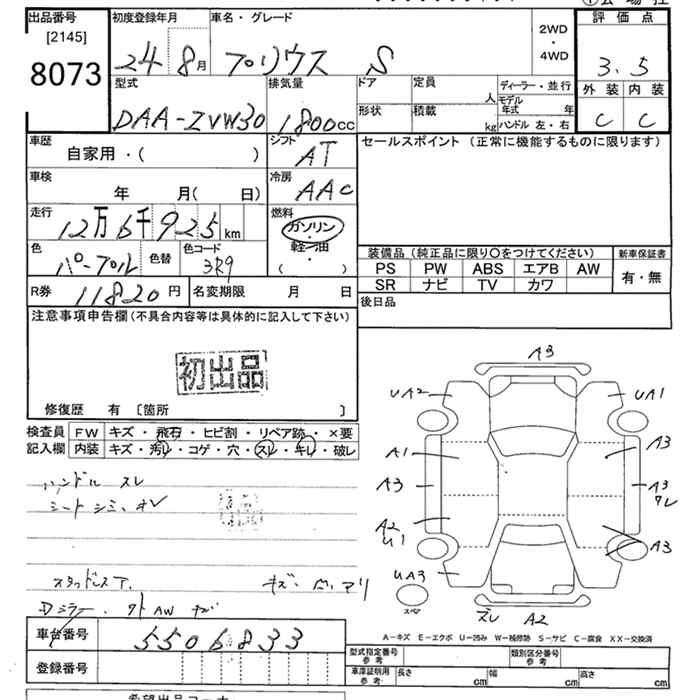 出品番号 初度登録年月 車名・グレード 評価点
[2145] 2WD
8073 24 8月 プリウス S ・ 3.5
4WD
型式 排気量 ドア 定員 ディーラー・並行 外装 内装
DAA-ZVW30 1800cc 人 モデル年式 年 C C
形状 積載 kg ハンドル 左・右
車歴 シフト セールスポイント (正常に機能するものに限ります)
自家用・( ) AT
車検 冷房
年 月( 日) AAC
走行 燃料
12万6千925km ガソリン
色 色替 色コード 軽油
パープル 3R9 ( )
装備品 (純正品に限り〇をつけてください) 新車保証書
PS PW ABS エアB AW 有・無
SR ナビ TV カワ
R券 11820円 名変期限 月 日 後日品
注意事項申告欄 (不具合内容等は具体的に記入して下さい)
初出品
修復歴 有 [箇所 ]
検査員 FW キズ・飛石・ヒビ割・リペア跡・×要
記入欄 内装 キズ・汚レ・コゲ・穴・スレ・キレ・破レ
ハンドル スレ
シート シミ、オレ
スタッドレスT. キズ・凹 アリ
Dミラー、 AW キズ
A3
UA2 UA1
A1 A3
A3 A3
ワレ
A2
U1 A3
UA3
スペア
ズレ A2
A-キズ E-エクボ U-凹み W-補修跡 S-サビ C-腐食 XX-交換済
車台番号 5506833
登録番号
型式指定番号 参考 類別区分番号 参考
車庫証明用 参考 長さ cm 幅 cm 高さ cm